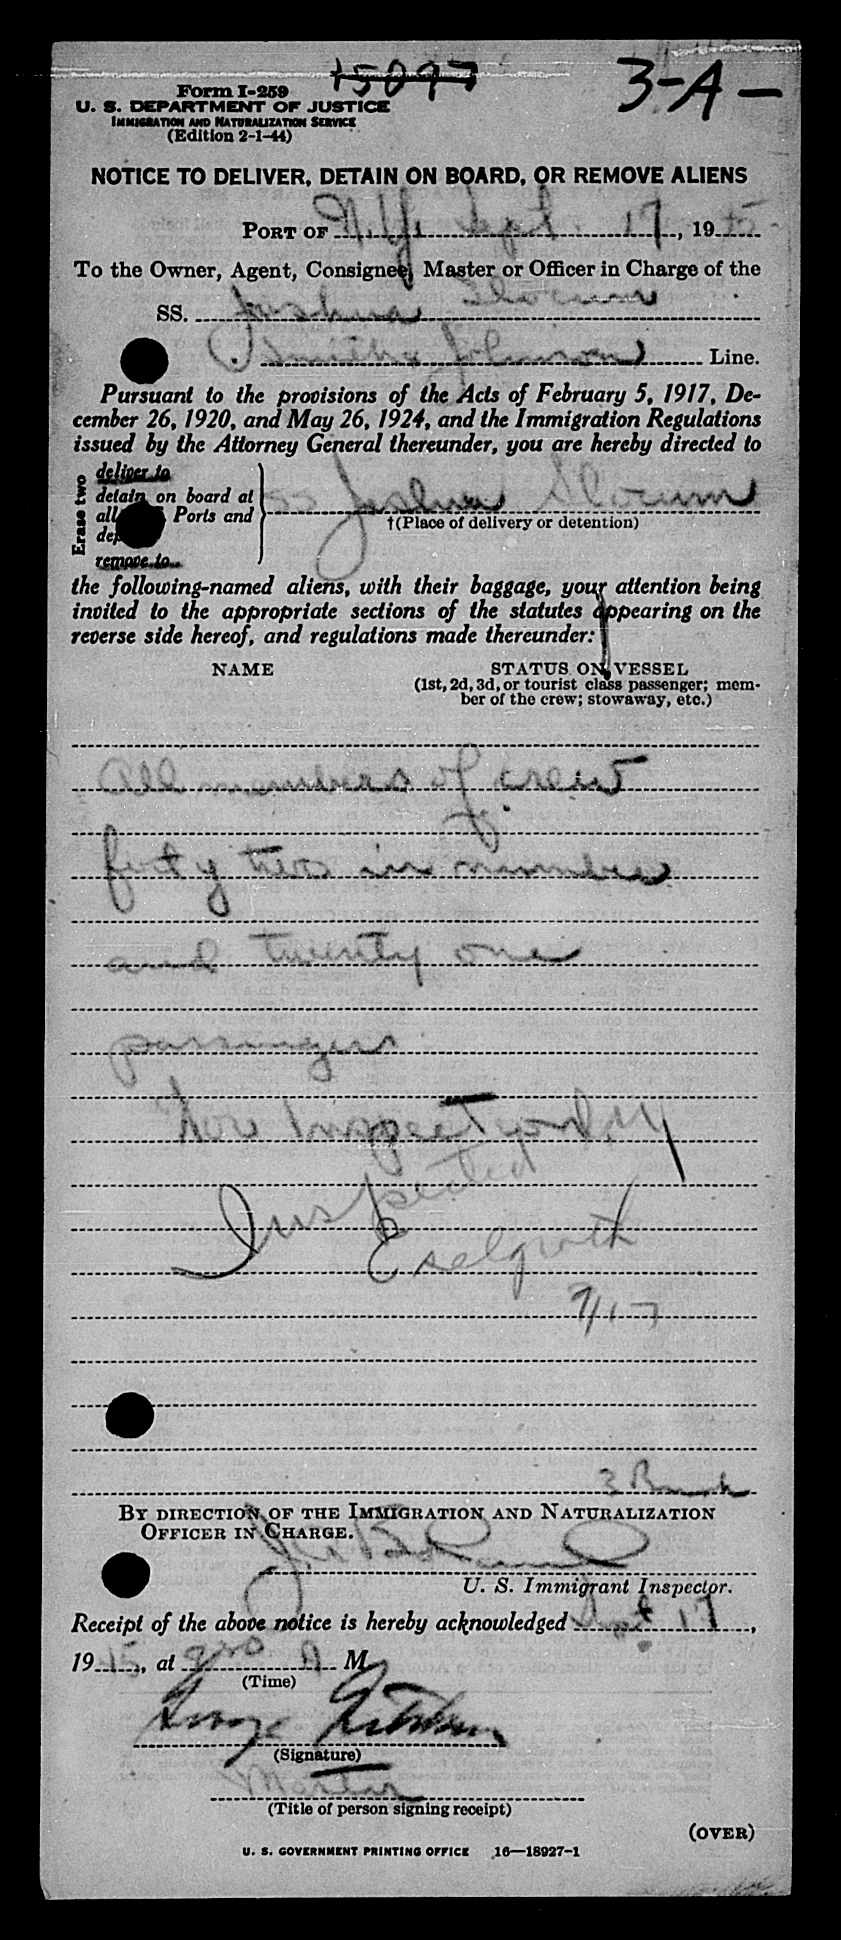 15097
3-A-
Form I-259
U. S. DEPARTMENT OF JUSTICE
IMMIGRATION AND NATURALIZATION SERVICE
(Edition 2-1-44)
NOTICE TO DELIVER, DETAIN ON BOARD, OR REMOVE ALIENS
PORT OF N.Y. Sept. 17, 1945
To the Owner, Agent, Consignee, Master or Officer in Charge of the
SS. Joshua Slocum
Smith & Johnson Line.
Pursuant to the provisions of the Acts of February 5, 1917, De-
cember 26, 1920, and May 26, 1924, and the Immigration Regulations
issued by the Attorney General thereunder, you are hereby directed to
Erase two
deliver to
detain on board at
all Ports and
remove to
SS Joshua Slocum
†(Place of delivery or detention)
the following-named aliens, with their baggage, your attention being
invited to the appropriate sections of the statutes appearing on the
reverse side hereof, and regulations made thereunder:
NAME
STATUS ON VESSEL
(1st, 2d, 3d, or tourist class passenger; mem-
ber of the crew; stowaway, etc.)
All members of crew
forty two in number
and twenty one
passengers
Inspected
9/17
BY DIRECTION OF THE IMMIGRATION AND NATURALIZATION
OFFICER IN CHARGE.
U. S. Immigrant Inspector.
Receipt of the above notice is hereby acknowledged Sept 17,
1945, at 930 A M
(Time)
George
(Signature)
Master
(Title of person signing receipt)
(OVER)
U. S. GOVERNMENT PRINTING OFFICE 16—18927-1